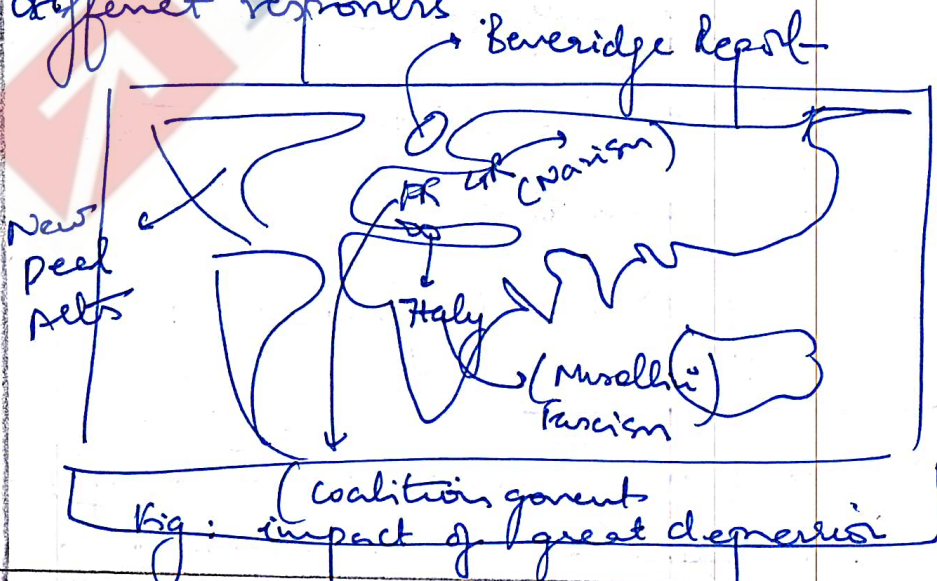 different responers
Beveridge Report
(Nazism)
FR GR
New
Deel
Acts
Italy
(Musollini)
Fascism
(Coalition goverents
Fig: impact of great depression